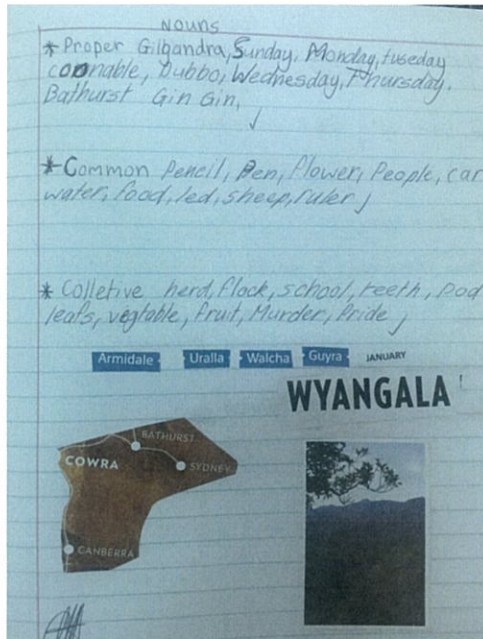 NOUNS
* Proper Gilgandra, Sunday, Monday, tuseday
coonnable, Dubbo, Wednesday, Thursday,
Bathurst Gin Gin,
* Common Pencil, Pen, flower, People, car
water, food, led, sheep, ruler
* Colletive herd, flock, school, teeth, Pod
leafs, vegtable, fruit, Murder, Pride
Armidale Uralla Walcha Guyra JANUARY
WYANGALA
BATHURST
COWRA
SYDNEY
CANBERRA